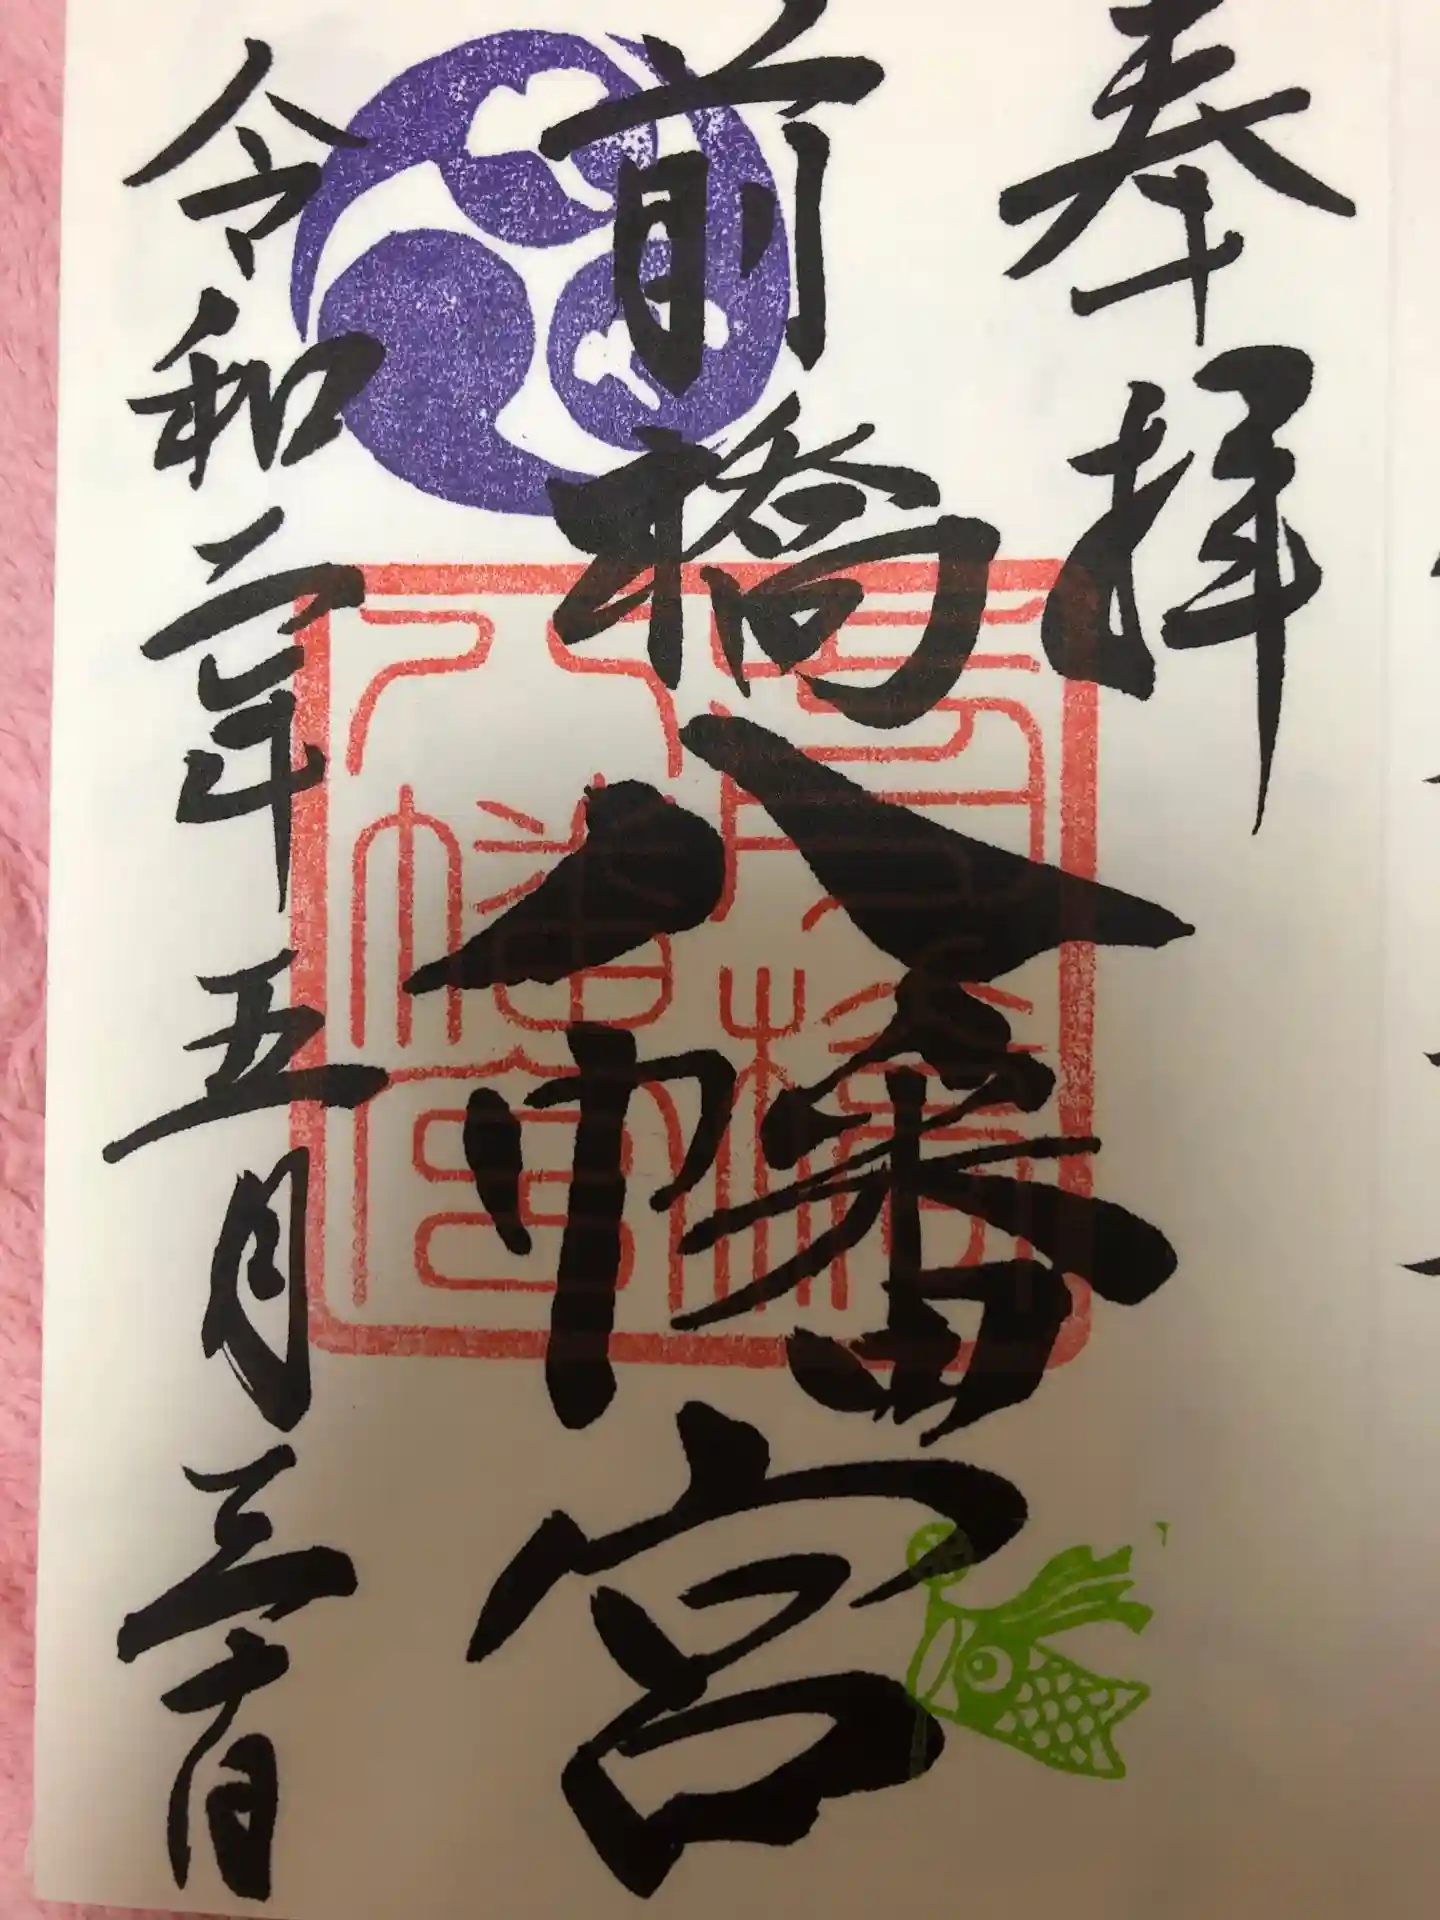 奉拝
前橋八幡宮
令和二年五月三十日
前橋
八幡宮